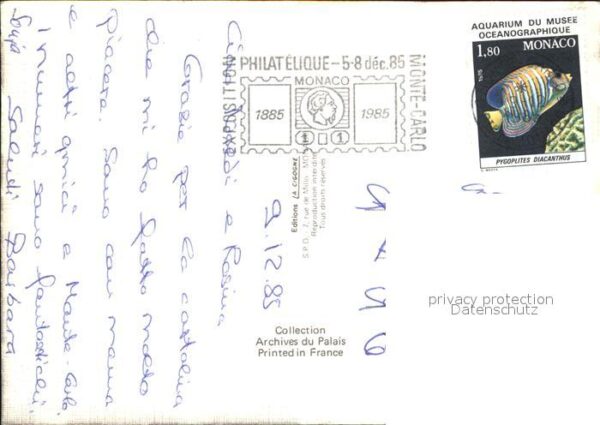 AQUARIUM DU MUSEE
OCEANOGRAPHIQUE
1,80 MONACO
PYGOPLITES DIACANTHUS
EXPOSITION PHILATÉLIQUE - 5-8 déc. 85 MONTE-CARLO
MONACO
1885 1985
1 1
Editions LA CIGOGNE
Reproduction interdite
Tous droits réservés
9.12.85
e Rosina
Grazie per la cartolina
che mi ha fatto molto
piacere. Sono con mamma
e altri amici a Monte-Carlo.
I numeri sono fantastici!
Saluti Barbara
Collection
Archives du Palais
Printed in France
privacy protection
Datenschutz